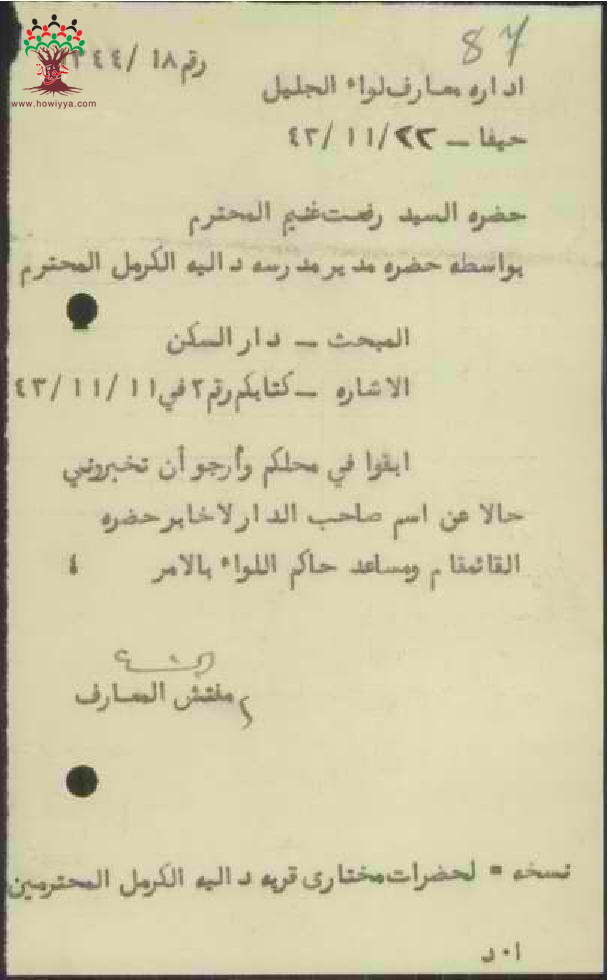 87
رقم ١٨/
www.howiyya.com
اداره معارف لواء الجليل
حيفا – ٤٣/١١/٢٢
حضره السيد رفعت غنيم المحترم
بواسطه حضره مدير مدرسه داليه الكرمل المحترم
المبحث – دار السكن
الاشاره – كتابكم رقم ٢ في ٤٣/١١/١١
ابقوا في محلكم وأرجو أن تخبروني
حالا عن اسم صاحب الدار لاخابر حضره
القائمقام ومساعد حاكم اللواء بالامر ٤
مفتش المعارف
نسخه = لحضرات مختارى قريه داليه الكرمل المحترمين
ا٠د